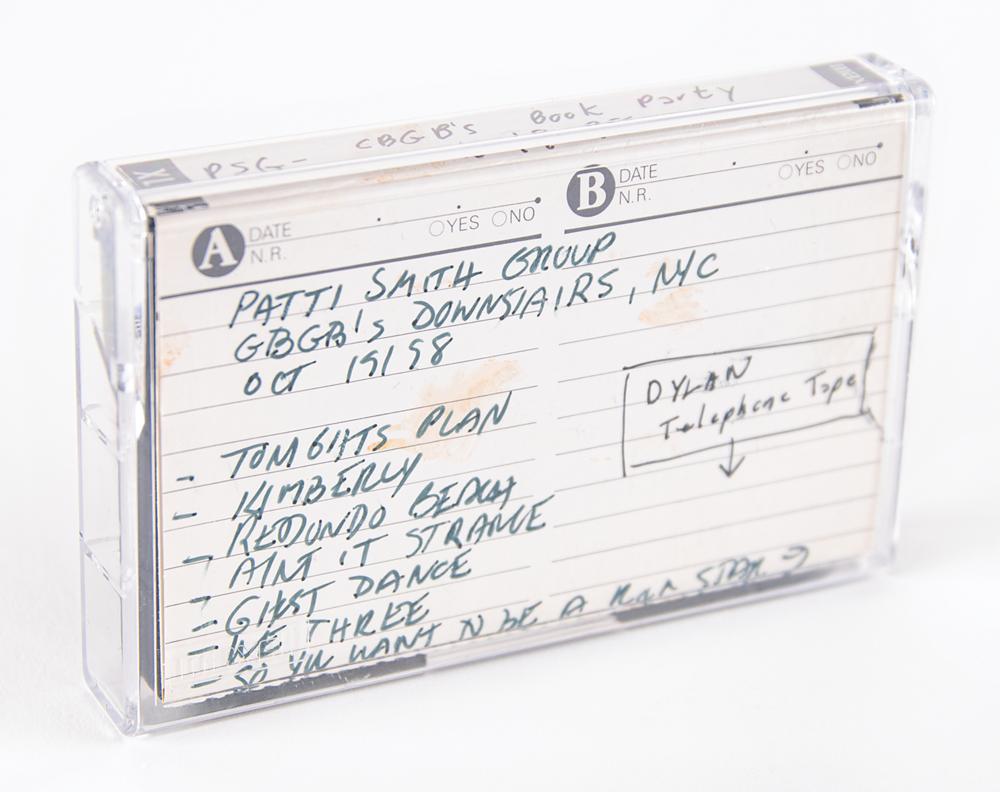 PSG- CBGB's Book Party
A DATE N.R. YES NO
B DATE N.R. YES NO
PATTI SMITH GROUP
GBGB's DOWNSTAIRS, NYC
OCT 19/98
- TONIGHTS PLAN
- KIMBERLY
- REDONDO BEACH
AINT IT STRANGE
- GHOST DANCE
- WE THREE
- SO YOU WANT TO BE A R&R STAR →
DYLAN
Telephone Tape
↓